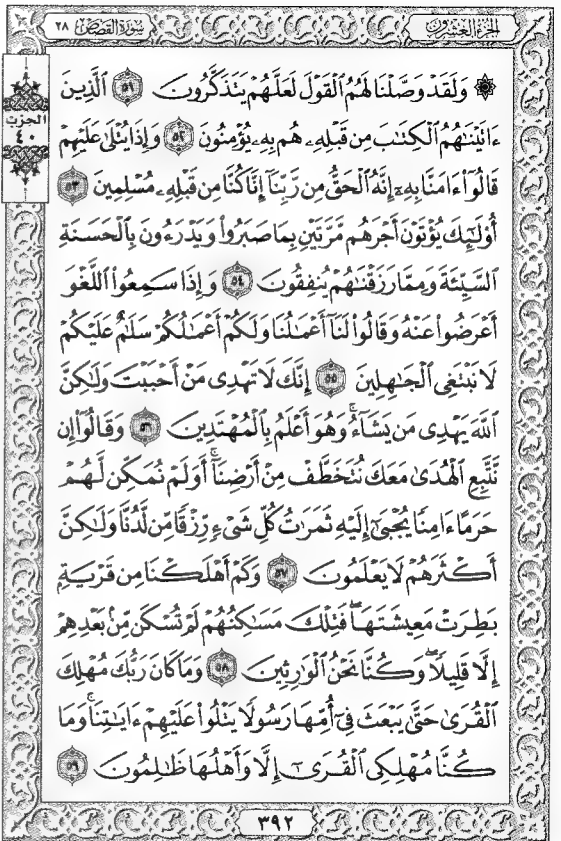 الجزء العشرون
سورة القصص ٢٨
الحزب
٤٠
۞ وَلَقَدْ وَصَّلْنَا لَهُمُ ٱلْقَوْلَ لَعَلَّهُمْ يَتَذَكَّرُونَ ٥١ ٱلَّذِينَ
ءَاتَيْنَٰهُمُ ٱلْكِتَٰبَ مِن قَبْلِهِۦ هُم بِهِۦ يُؤْمِنُونَ ٥٢ وَإِذَا يُتْلَىٰ عَلَيْهِمْ
قَالُوٓا۟ ءَامَنَّا بِهِۦٓ إِنَّهُ ٱلْحَقُّ مِن رَّبِّنَآ إِنَّا كُنَّا مِن قَبْلِهِۦ مُسْلِمِينَ ٥٣
أُو۟لَٰٓئِكَ يُؤْتَوْنَ أَجْرَهُم مَّرَّتَيْنِ بِمَا صَبَرُوا۟ وَيَدْرَءُونَ بِٱلْحَسَنَةِ
ٱلسَّيِّئَةَ وَمِمَّا رَزَقْنَٰهُمْ يُنفِقُونَ ٥٤ وَإِذَا سَمِعُوا۟ ٱللَّغْوَ
أَعْرَضُوا۟ عَنْهُ وَقَالُوا۟ لَنَآ أَعْمَٰلُنَا وَلَكُمْ أَعْمَٰلُكُمْ سَلَٰمٌ عَلَيْكُمْ
لَا نَبْتَغِى ٱلْجَٰهِلِينَ ٥٥ إِنَّكَ لَا تَهْدِى مَنْ أَحْبَبْتَ وَلَٰكِنَّ
ٱللَّهَ يَهْدِى مَن يَشَآءُ ۚ وَهُوَ أَعْلَمُ بِٱلْمُهْتَدِينَ ٥٦ وَقَالُوٓا۟ إِن
نَّتَّبِعِ ٱلْهُدَىٰ مَعَكَ نُتَخَطَّفْ مِنْ أَرْضِنَآ ۚ أَوَلَمْ نُمَكِّن لَّهُمْ
حَرَمًا ءَامِنًا يُجْبَىٰٓ إِلَيْهِ ثَمَرَٰتُ كُلِّ شَىْءٍ رِّزْقًا مِّن لَّدُنَّا وَلَٰكِنَّ
أَكْثَرَهُمْ لَا يَعْلَمُونَ ٥٧ وَكَمْ أَهْلَكْنَا مِن قَرْيَةٍۭ
بَطِرَتْ مَعِيشَتَهَا ۖ فَتِلْكَ مَسَٰكِنُهُمْ لَمْ تُسْكَن مِّنۢ بَعْدِهِمْ
إِلَّا قَلِيلًا ۖ وَكُنَّا نَحْنُ ٱلْوَٰرِثِينَ ٥٨ وَمَا كَانَ رَبُّكَ مُهْلِكَ
ٱلْقُرَىٰ حَتَّىٰ يَبْعَثَ فِىٓ أُمِّهَا رَسُولًا يَتْلُوا۟ عَلَيْهِمْ ءَايَٰتِنَا ۚ وَمَا
كُنَّا مُهْلِكِى ٱلْقُرَىٰٓ إِلَّا وَأَهْلُهَا ظَٰلِمُونَ ٥٩
٣٩٢